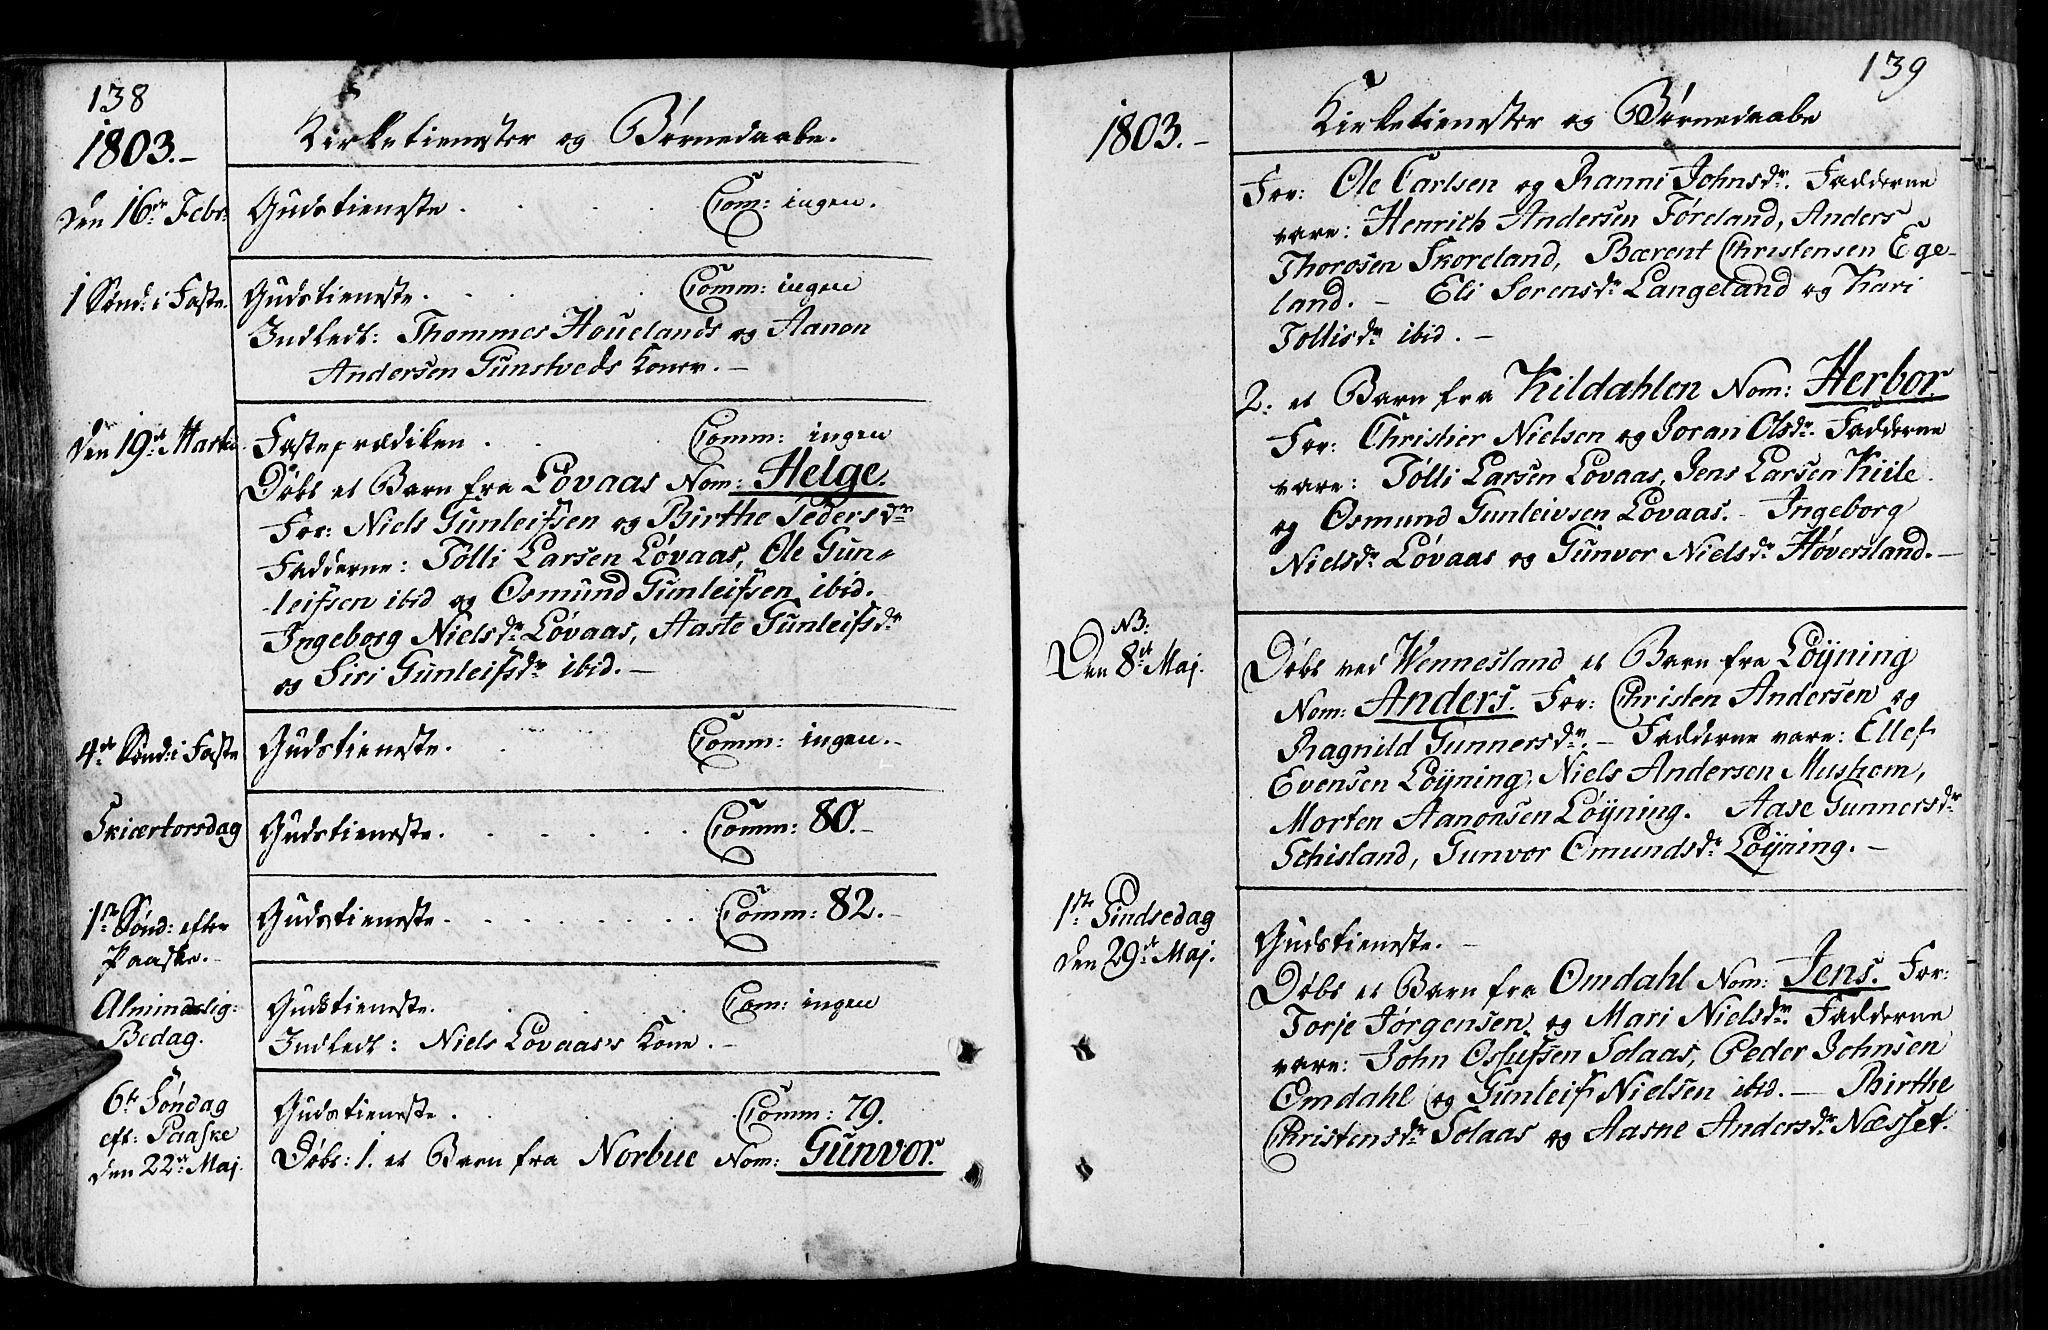 138
1803.-
Kirketienester og Børnedaabe.
Den 16de Febr:
Gudstieneste . . . . Com: ingen.
1 Sønd: i Faste.
Gudstieneste. . . . . Comm: ingen
Indledt: Thommes Houelands og Aanon
Andersen Gunstveds Koner. -
Den 19de Martii
Fasteprædiken . . . Comm: ingen
Døbt et Barn fra Lovaas Nom: Helge.
For: Niels Gunleifsen og Birthe Pedersdr
Fadderne: Tolli Larsen Lovaas, Ole Gun-
-leifsen ibid og Osmund Gunleifsen ibid.
Ingeborg Nielsdr Lovaas, Aaste Gunleifsdr
og Siri Gunleifsdr ibid. -
4de Sønd: i Faste
Gudstieneste. . . . Comm: ingen. -
Skiærtorsdag
Gudstieneste. . . . . . Comm: 80. -
1ste Sønd: efter
Paaske. -
Gudstieneste . . . . . . . Comm: 82. -
Almindelig:
Bedag.
Gudstieneste. . . . . Com: ingen
Indledt: Niels Lovaas's Kone. -
6te Søndag
eft: Paaske
den 22de Maj.
Gudstieneste . . . . . Comm: 79.
Døbt: 1. et Barn fra Norbue Nom: Gunvor.
139
1803. -
Kirketienester og Børnedaabe
For: Ole Carlsen og Ranni Johnsdr. Fadderne
vare: Henrich Andersen Føreland, Anders
Thorosen Skoreland, Bærent Christensen Ege-
land. - Eli Sorensdr Langeland og Kari
Tollisdr ibid. -
2: et Barn fra Kildahlen Nom: Herbor.
For: Christier Nielsen og Joran Olsdr. Fadderne
vare: Tolli Larsen Lovaas, Jens Larsen Kiile
og Osmund Gunleivsen Lovaas. - Ingeborg
Nielsdr Lovaas og Gunvor Nielsdr Høversland. -
NB:
Den 8de Maj.
Døbt ved Wennesland et Barn fra Løyning
Nom: Anders. For: Christen Andersen og
Ragnild Gunnersdr. - Fadderne vare: Ellef
Evensen Løyning, Niels Andersen Mushom,
Morten Aanonsen Løyning. Aase Gunnersdr
Schisland, Gunvor Omundsdr Løyning. -
1ste Pindsedag
den 29de Maj.
Gudstieneste. -
Døbt et Barn fra Omdahl Nom: Jens. For:
Torje Jørgensen og Mari Nielsdr. Fadderne
vare: John Oslufsen Solaas, Peder Johnsen
Omdahl og Gunleif Nielsen ibid. - Birthe
Christensdr Solaas og Aasne Andersdr Næsset.